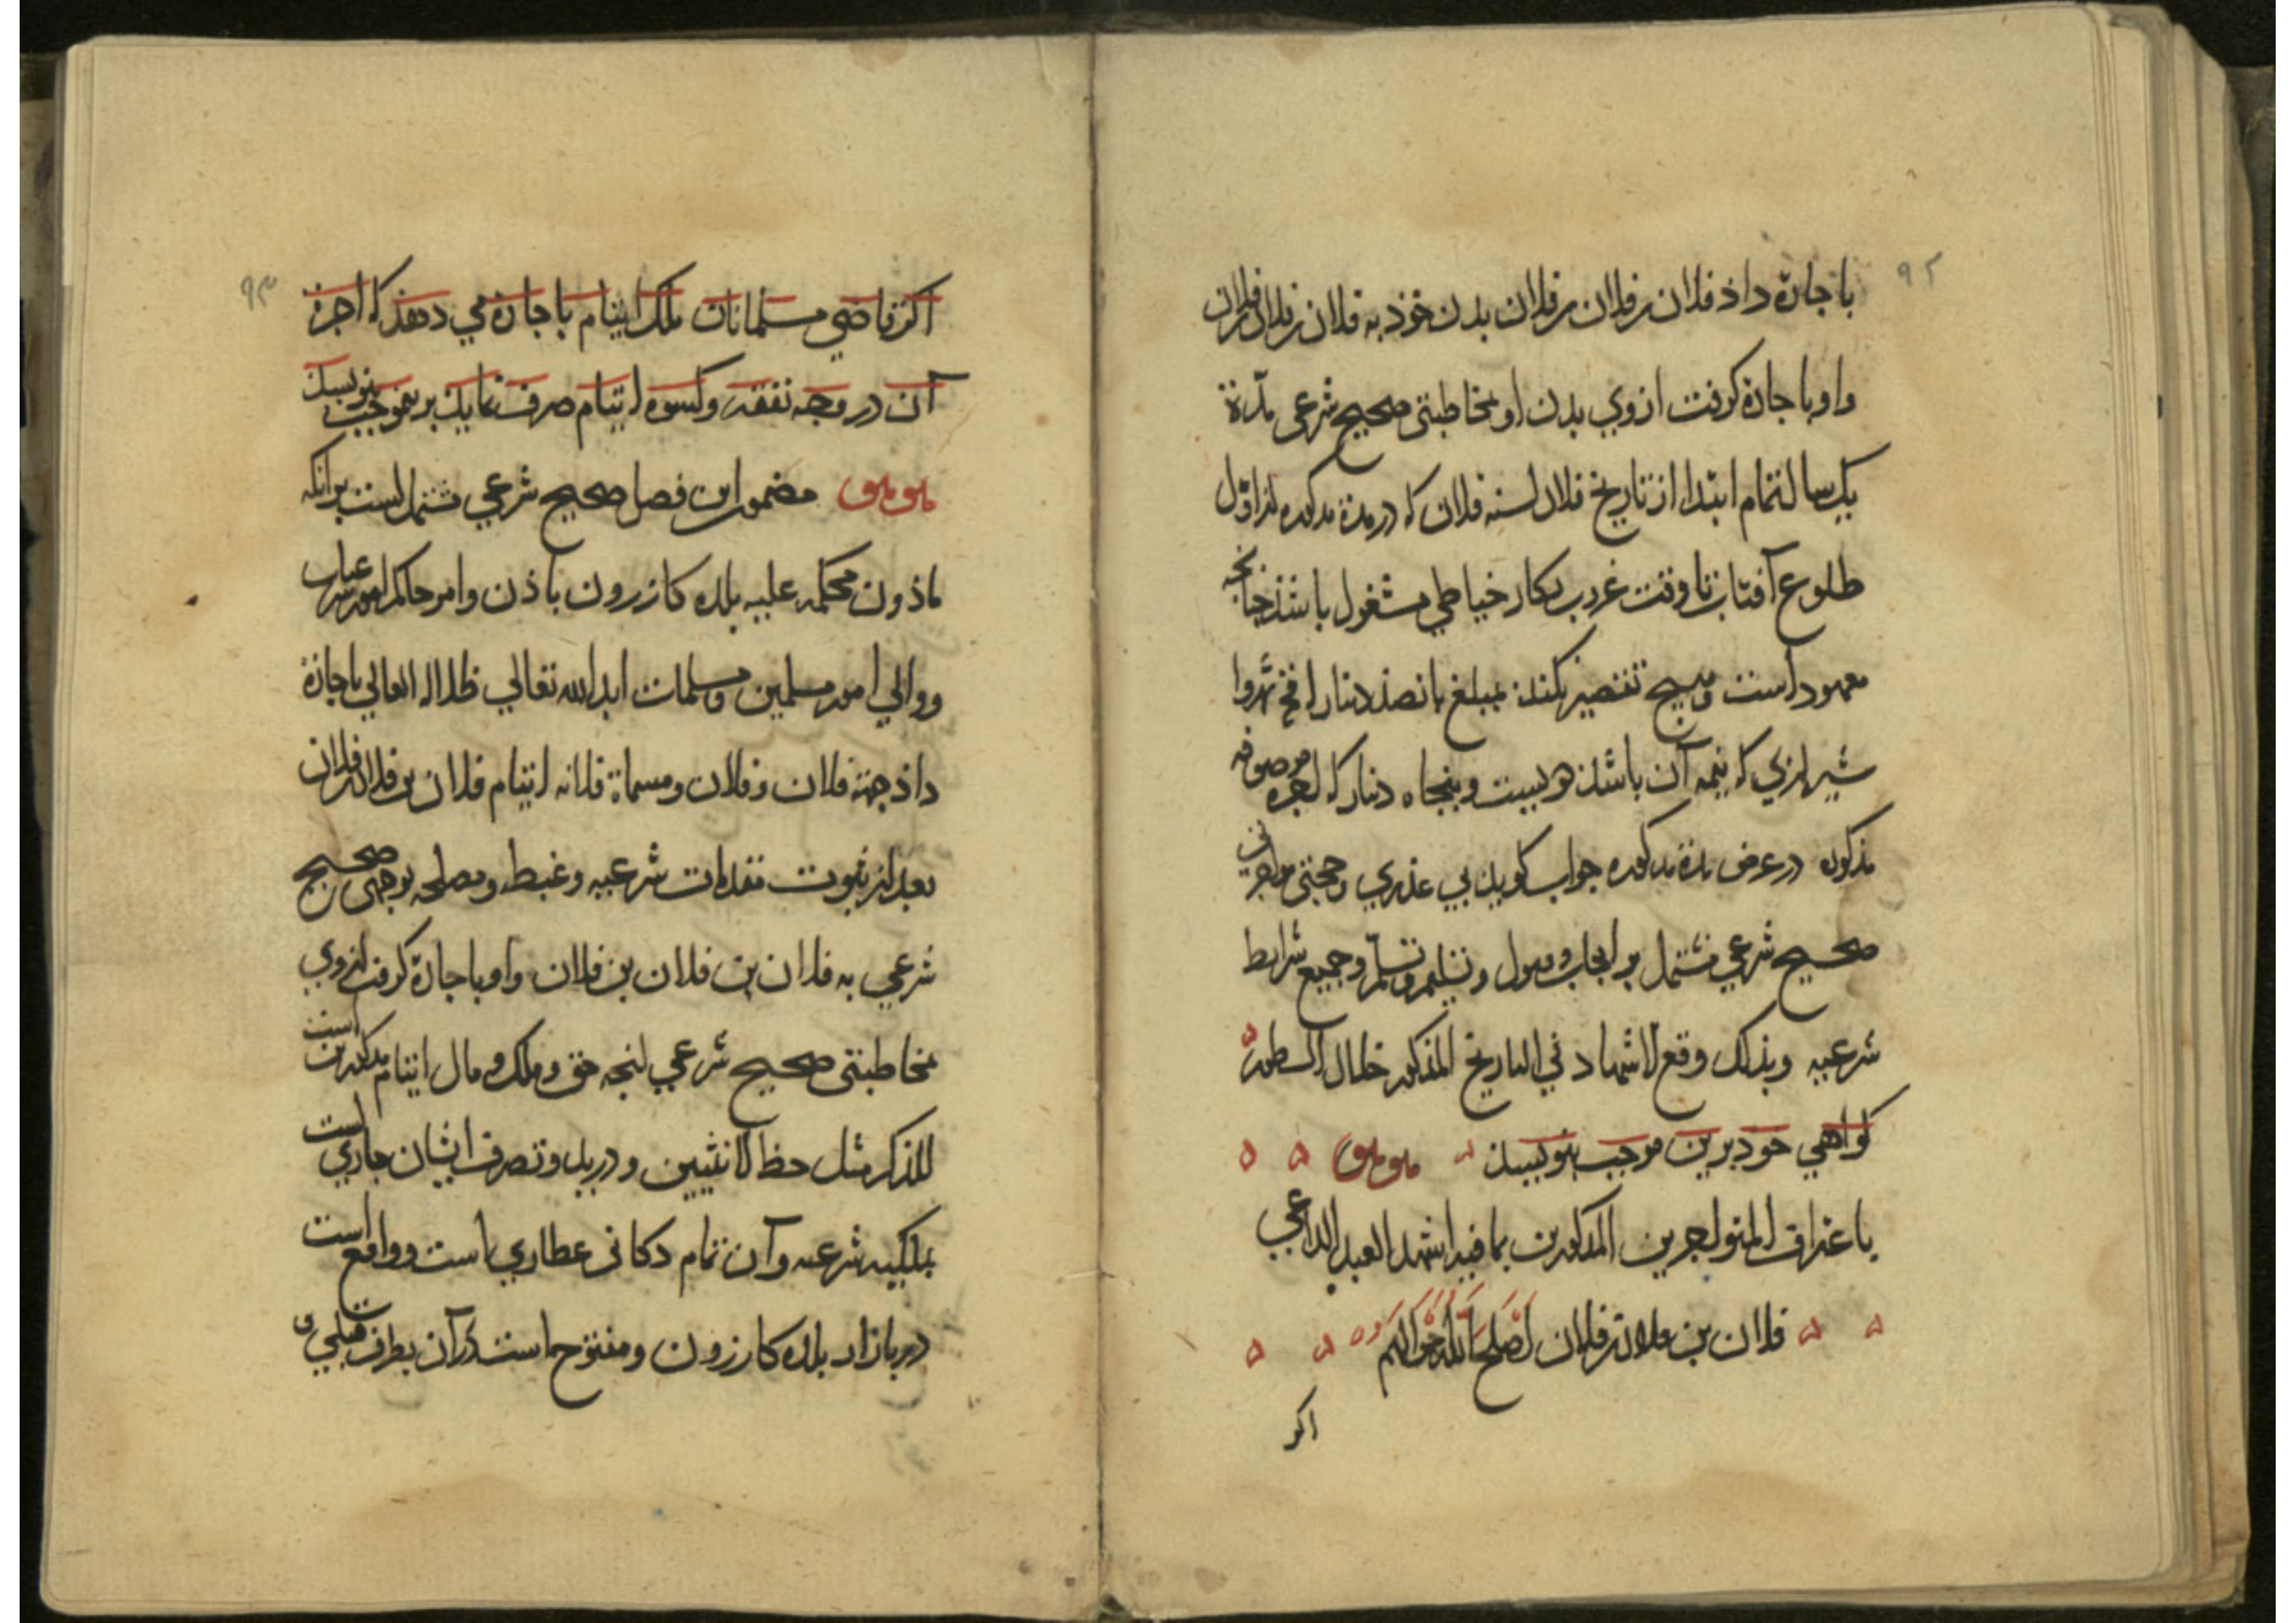 ٩٢
باجازة داذ فلان بن فلان بن فلان بدن خوذ به فلان بن فلان بن فلان
واو باجازة كرفت ازوي بدن او بمخاطبتى صحيح شرعى مدّة
يك سال تمام ابتدا از تاريخ فلان لسنه فلان كه در مدة مذكوره از اوّل
طلوع آفتاب تا وقت غروب بكار خياطي مشغول باشذ جنانجه
معهود است وهيج تقصير نكند بمبلغ بانصذ دنار
شيرازي كه نيمه آن باشذ دويست وبنجاه دنار كه اجره موصوفه
مذكوره در عرض مدة مذكوره جواب كويد بي عذري وحجتى
صحيح شرعي مشتمل بر ايجاب وقبول وتسليم وتسلّم وجميع شرايط
شرعيه وبذلك وقع الاشهاد في التاريخ المذكور خلال السطور
كواهي خود برين موجب بنويسد
باعتراف المتواجرين المذكورين بما فيه اشهد العبد الداعي
فلان بن فلان بن فلان اصلح الله احوالهم
اكر
٩٣
اكر قاضي مسلمانان ملك ايتام باجازة مي دهذ كه اجرة
آن در وجه نفقه وكسوه ايتام صرف نمايد برينموجب بنويسد
مضمون اين فصل صحيح شرعي مشتمل است برانكه
ماذون محكمه عليه بلده كازرون باذن وامر حاكم امور شرعيات
ووالي امور مسلمين ومسلمات ابد الله تعالي ظلاله العالي باجازة
داذ جهة فلان وفلان ومسماة فلانه ايتام فلان بن فلان بن فلان
بعد از ثبوت مقدمات شرعيه وغبطه ومصلحه بوجهى صحيح
شرعي به فلان بن فلان بن فلان واو باجازة كرفت ازوي
بمخاطبتى صحيح شرعي انجه حق وملك ومال ايتام مذكورين است
للذكر مثل حظ الانثيين ودر يد وتصرف ايشان جاري است
بملكيه شرعيه وآن تمام دكانى عطاري است وواقع است
در بازار بلده كازرون ومفتوح است در آن بطرف قبلي و